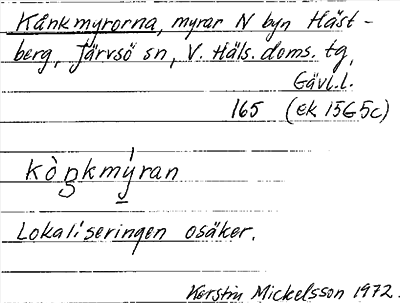 Kånkmyrorna, myrar N byn Häst-
berg, Järvsö sn, V. Häls. doms. tg,
Gävl. l.
165 (ek 15G 5c)
kòŋkmýran
Lokaliseringen osäker.
Kerstin Mickelsson 1972.